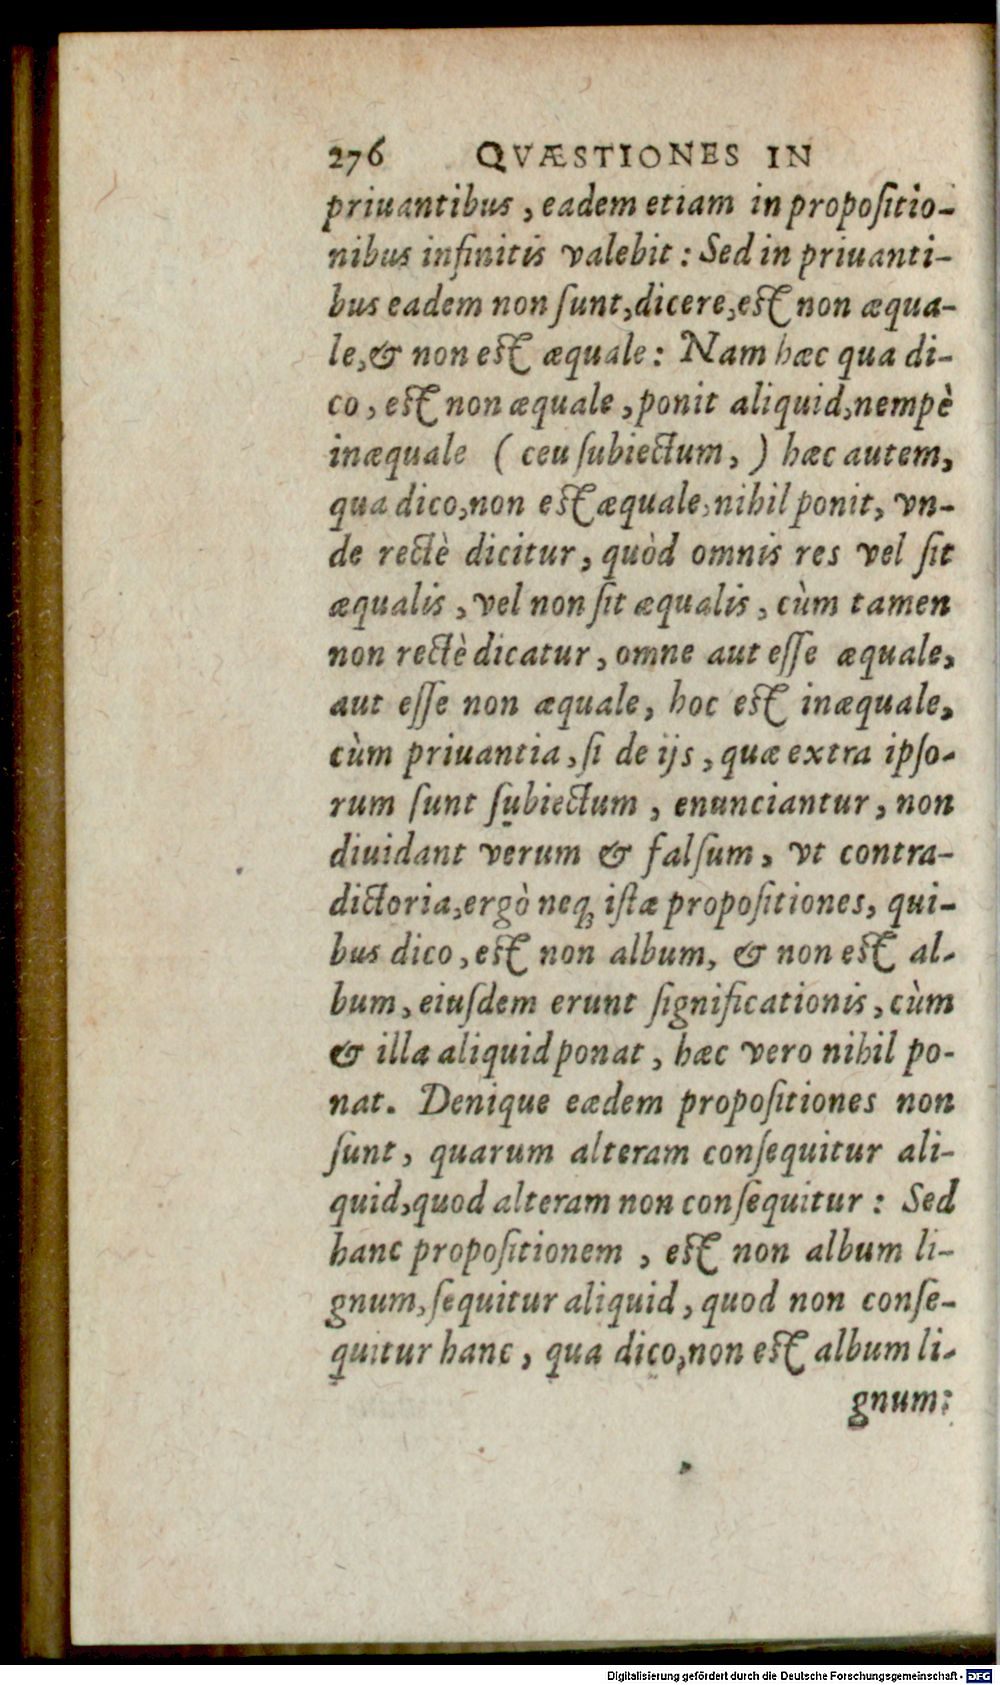 276 QVÆSTIONES IN
priuantibus, eadem etiam in propoſitio-
nibus infinitis valebit: Sed in priuanti-
bus eadem non ſunt, dicere, eſt non æqua-
le, & non eſt æquale: Nam hæc qua di-
co, eſt non æquale, ponit aliquid, nempè
inæquale (ceu ſubiectum,) hæc autem,
qua dico, non eſt æquale, nihil ponit, vn-
de rectè dicitur, quòd omnis res vel ſit
æqualis, vel non ſit æqualis, cùm tamen
non rectè dicatur, omne aut eſſe æquale,
aut eſſe non æquale, hoc eſt inæquale,
cùm priuantia, ſi de ijs, quæ extra ipſo-
rum ſunt ſubiectum, enunciantur, non
diuidant verum & falſum, vt contra-
dictoria, ergò neq; iſtæ propoſitiones, qui-
bus dico, eſt non album, & non eſt al-
bum, eiuſdem erunt ſignificationis, cùm
& illa aliquid ponat, hæc vero nihil po-
nat. Denique eædem propoſitiones non
ſunt, quarum alteram conſequitur ali-
quid, quod alteram non conſequitur: Sed
hanc propoſitionem, eſt non album li-
gnum, ſequitur aliquid, quod non conſe-
quitur hanc, qua dico, non eſt album li-
gnum:
Digitalisierung gefördert durch die Deutsche Forschungsgemeinschaft - DFG